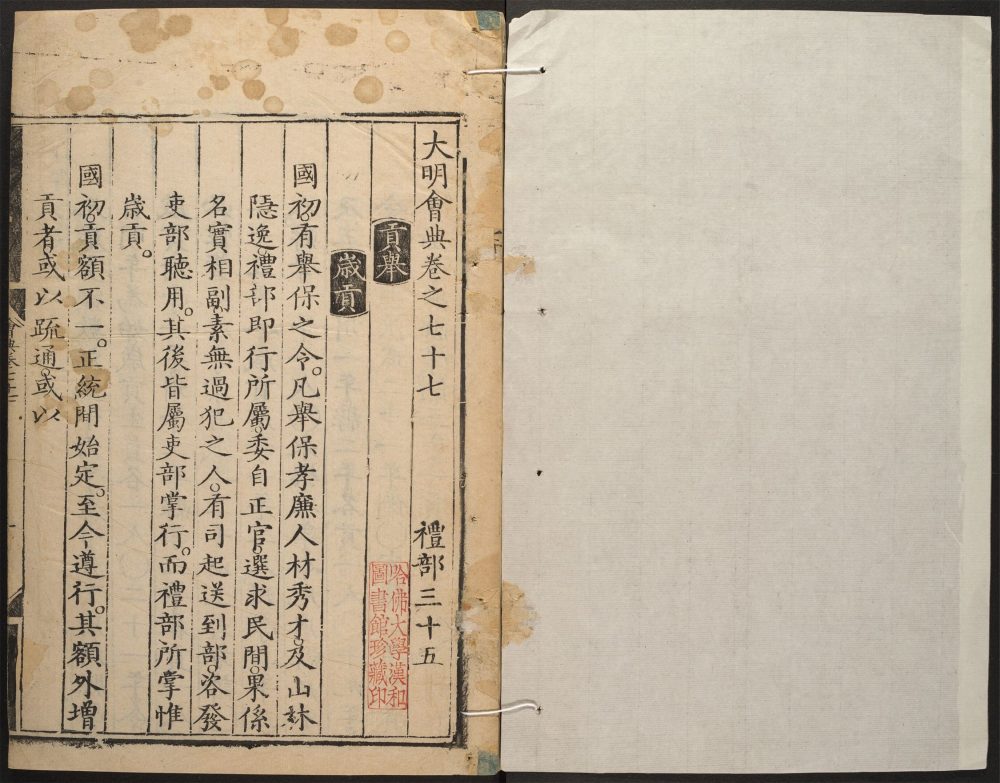 大明會典卷之七十七 禮部三十五
貢舉
歲貢
國初有舉保之令。凡舉保孝廉人材秀才及山林
隱逸。禮部即行所屬。委自正官。選求民間。果係
名實相副。素無過犯之人。有司起送到部。咨發
吏部聽用。其後皆屬吏部掌行。而禮部所掌惟
歲貢。
國初。貢額不一。正統間始定。至今遵行。其額外增
貢者。或以疏通。或以
哈佛大學漢和
圖書館珍藏印